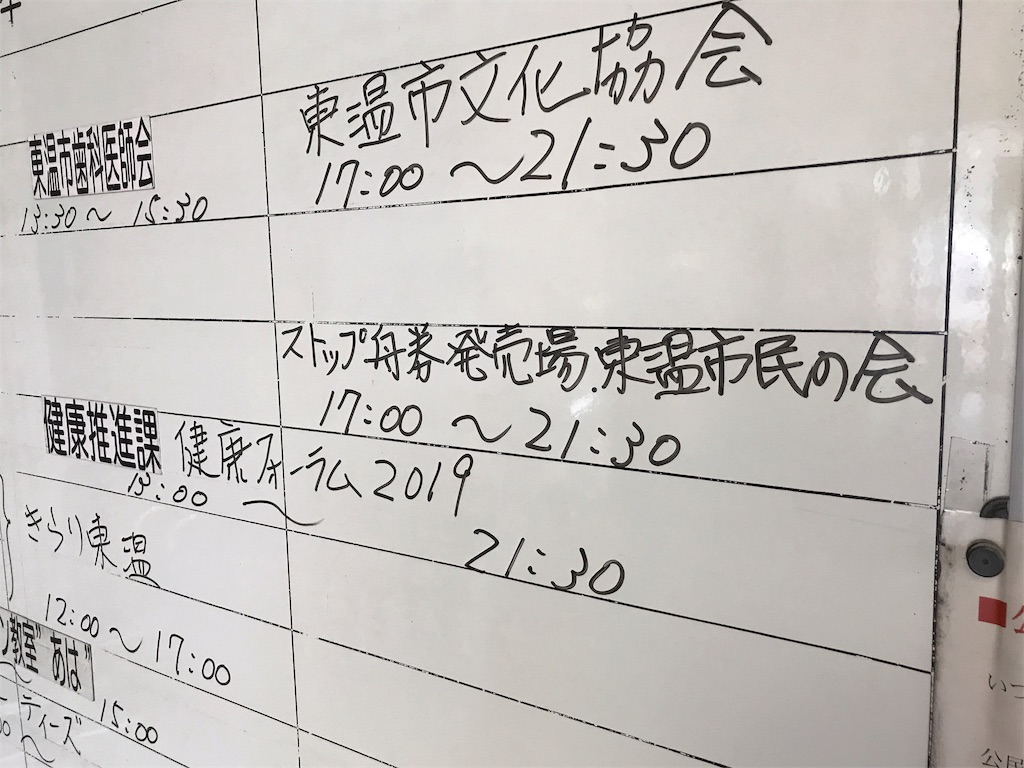 東温市文化協会
17:00 ～21:30
東温市歯科医師会
13:30～ 15:30
ストップ舟券発売場.東温市民の会
17:00 ～21:30
健康推進課 健康フォーラム2019
13:00 ～ 21:30
きらり東温
12:00～17:00
教室"あは"
15:00
ティーズ
～
いつ
公民